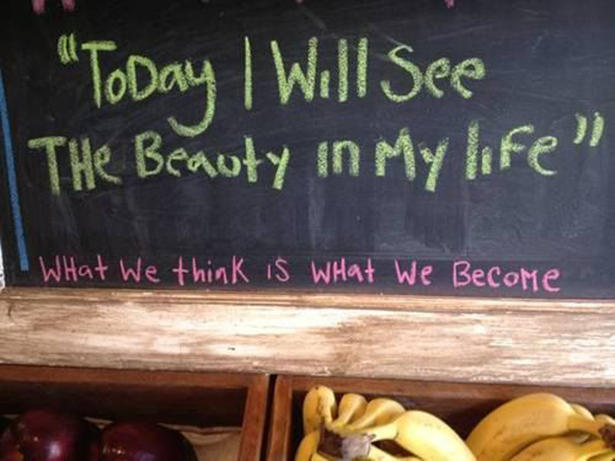 "Today I Will See
The Beauty in My life"
What We think is What We Become